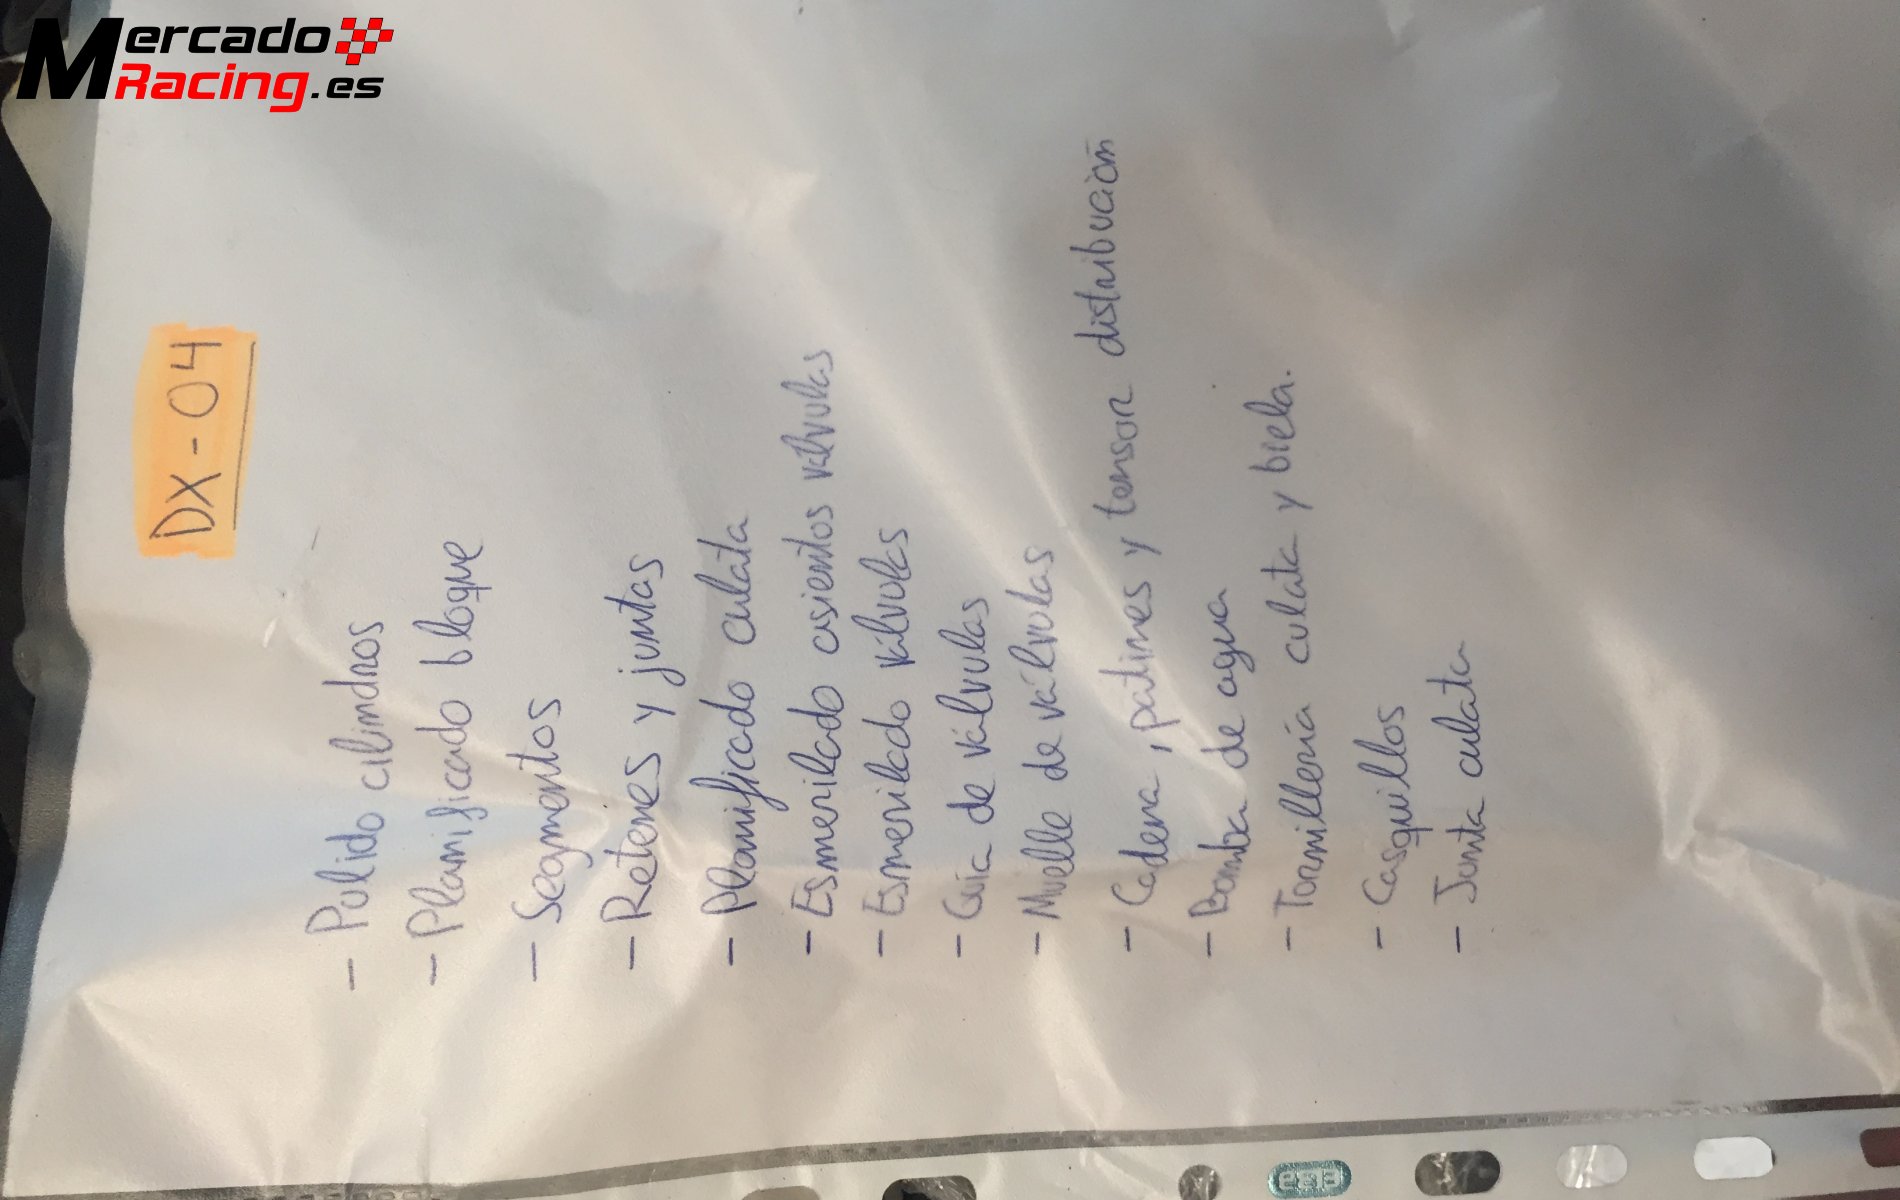 Mercado
Racing.es
DX-04
- Pulido cilindros
- Planificado bloque
- Segmentos
- Retenes y juntas
- Planificado culata
- Esmerilado asientos válvulas
- Esmerilado válvulas
- Guía de válvulas
- Muelle de válvulas
- Cadena, patines y tensor distribución
- Bomba de agua
- Tornillería culata y biela.
- Casquillos
- Junta culata